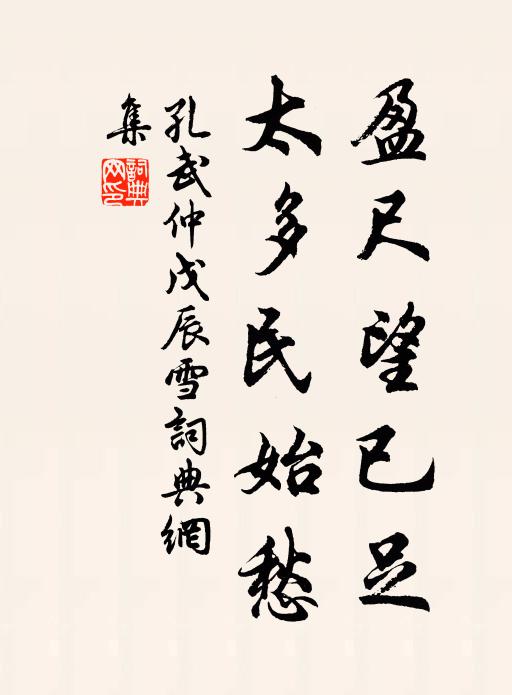 盈尺望已足
太多民始愁
孔武仲戊辰雪詞典網
集
詞典網印